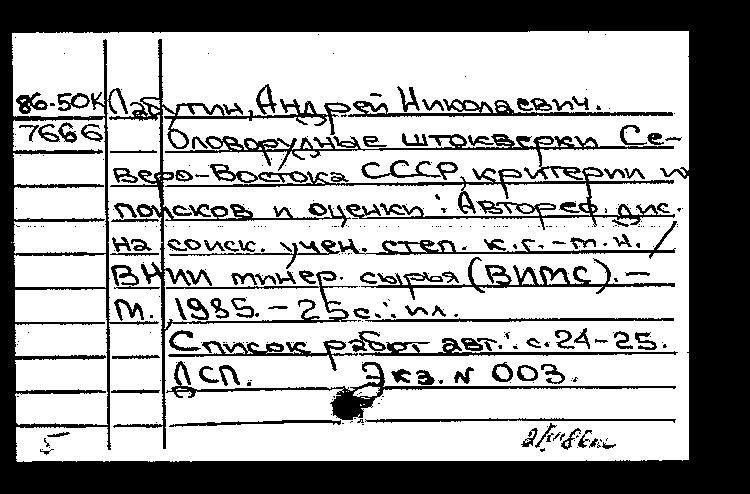 86-50К Лабутин, Андрей Николаевич.
7666 Оловорудные штокверки Се-
веро-Востока СССР, критерии их
поисков и оценки : Автореф. дис.
на соиск. учен. степ. к.г.-м.н. /
ВНИИ минер. сырья (ВИМС). —
М., 1985. - 25 с. : ил.
Список работ авт.: с. 24-25.
ДСП. Экз. N 003.
5